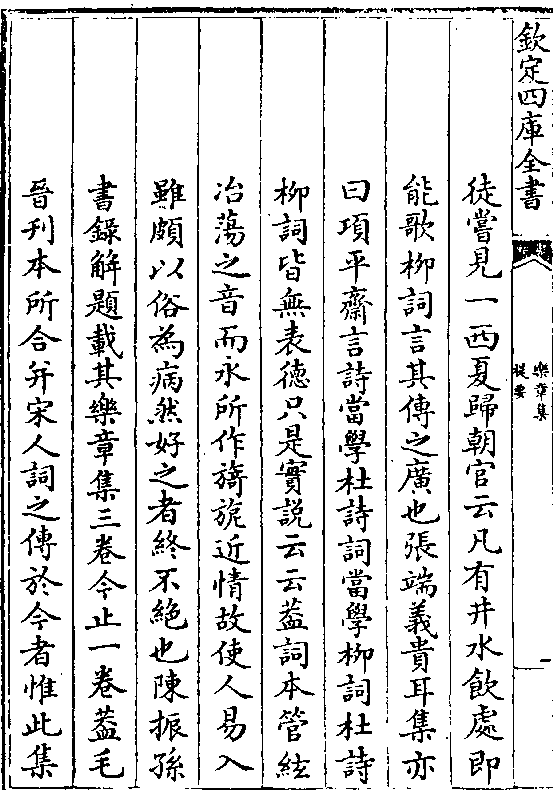 欽定四庫全書
樂章集
提要
徒嘗見一西夏歸朝官云凡有井水飲處即
能歌柳詞言其傳之廣也張端義貴耳集亦
曰項平齋言詩當學杜詩詞當學柳詞杜詩
柳詞皆無表德只是實説云云葢詞本管絃
冶蕩之音而永所作旖旎近情故使人易入
雖頗以俗為病然好之者終不絶也陳振孫
書錄解題載其樂章集三卷今止一卷葢毛
晉刊本所合并宋人詞之傳於今者惟此集